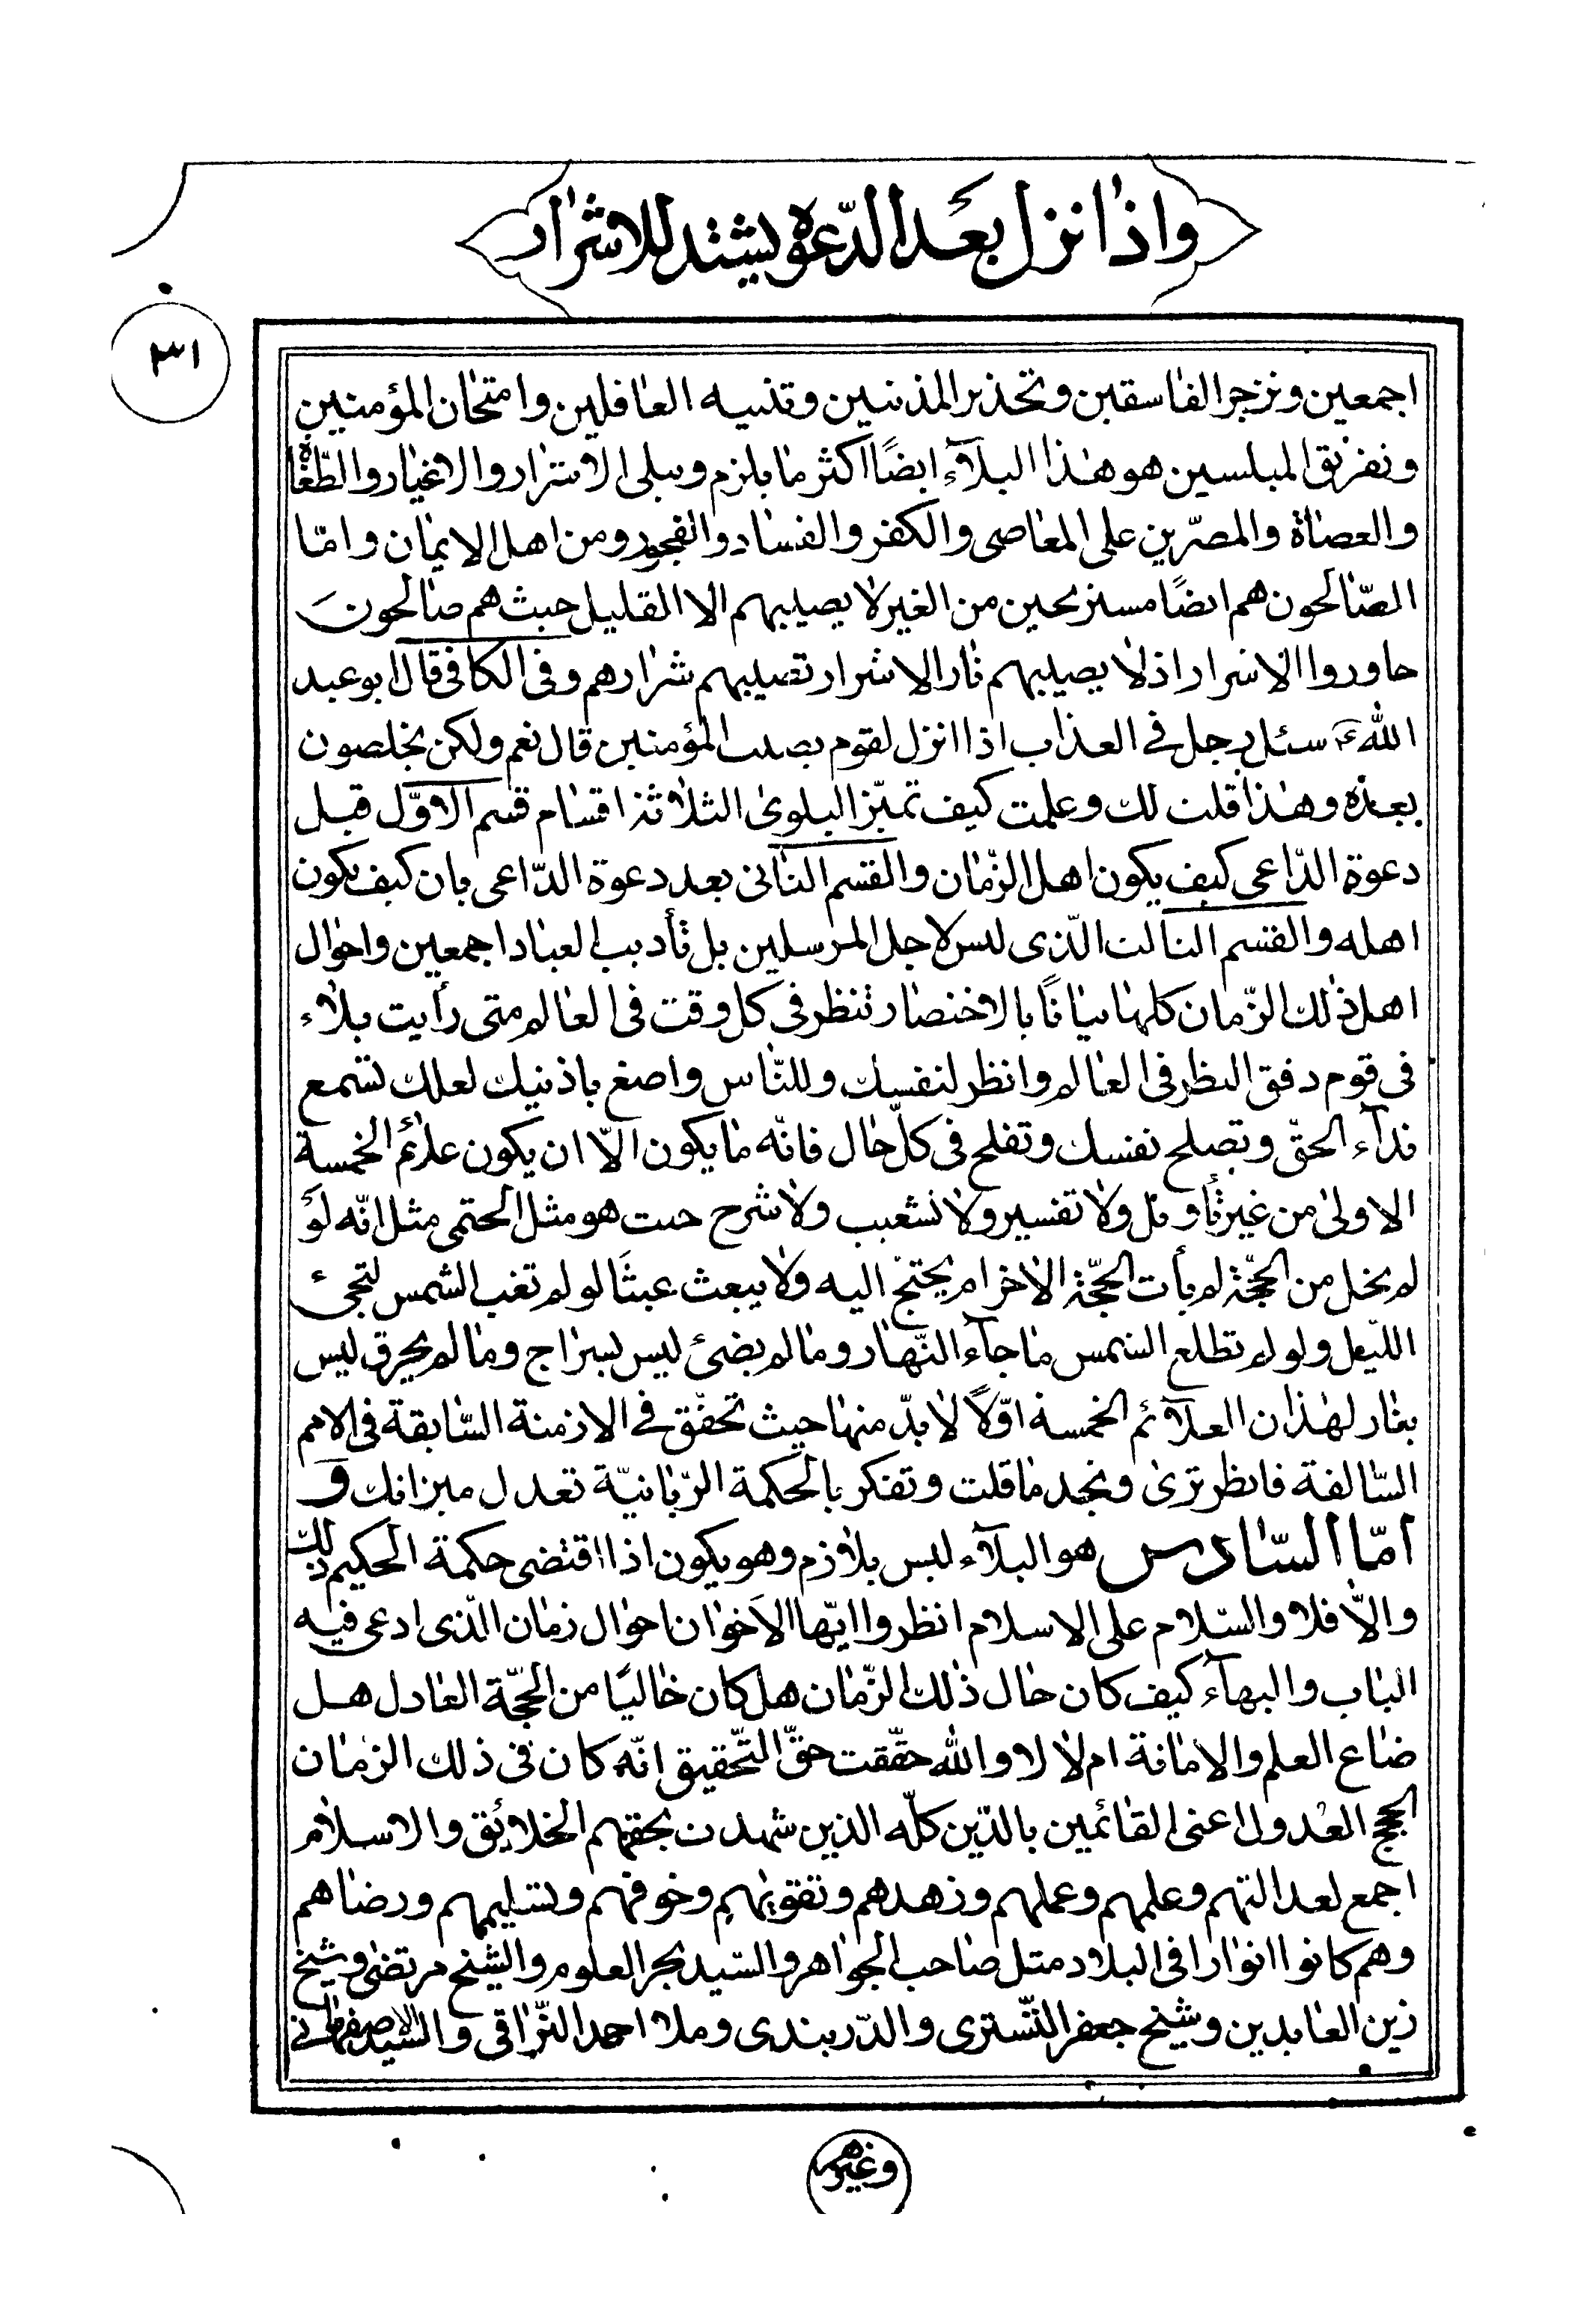 واذا نزل بعد الدّعوة يشتد للاشرار
٣١
اجمعين و نزجر الفاسقين وتحذير المذنبين وتنبيه الغافلين وامتحان المؤمنين
وتفريق المبلسين هو هذا البلآء ايضًا اكثر ما يلزم وسلى الاشرار والاغيار والطّغاة
والعصاة والمصرّين على المعاصى والكفر والفساد والفجور ومن اهل الايمان وامّا
الصّالحون هم ايضًا مستريحين من الغير لا يصيبهم الا القليل حيث هم صالحون
جاوروا الاشرار اذ لا يصيبهم نار الاشرار تصيبهم شرارهم وفى الكافى قال ابو عبد
الله ع سئل رجل فى العذاب اذا انزل لقوم يصيب المؤمنين قال نعم ولكن يخلصون
بعده وهذا قلت لك وعلمت كيف تميّز البلوى الثلاثة اقسام قسم الاوّل قبل
دعوة الدّاعى كيف يكون اهل الزّمان والقسم الثانى بعد دعوة الدّاعى بان كيف يكون
اهله والقسم الثالث الّذى ليس لاجل المرسلين بل تأديب العباد اجمعين واحوال
اهل ذلك الزّمان كلها بيانًا بالاختصار تنظر فى كل وقت فى العالم متى رأيت بلاء
فى قوم دقق النظر فى العالم وانظر لنفسك وللنّاس واصغ باذنيك لعلك تسمع
ندآء الحقّ وتصلح نفسك وتفلح فى كلّ حال فانّه ما يكون الّا ان يكون علائم الخمسة
الاولى من غير تأويل ولا تفسير ولا تشعيب ولا شرح حيث هو مثل الحتمى مثل انّه لو
لم يخل من الحجّة لم يأت الحجّة الاخر ام يحتجّ اليه ولا يبعث عبثًا لو لم تغب الشمس لتجىء
اللّيل ولو لم تطلع الشمس ما جآء النّهار وما لم يضئ ليس بسراج وما لم يحرق ليس
بنار لهذان العلآئم الخمسة اوّلاً لا بدّ منها حيث تحقّق فى الازمنة السّابقة فى الامم
السّالفة فانظر ترى وتجد ما قلت وتفكر بالحكمة الرّبانيّة تعدل ميزانك و
امّا السّادس هو البلآء ليس بلازم وهو يكون اذا اقتضى حكمة الحكيم ذلك
والّا فلا والسّلام على الاسلام انظروا ايّها الاخوان احوال زمان الّذى ادعى فيه
الباب والبهآء كيف كان حال ذلك الزّمان هل كان خاليًا من الحجّة العادل هل
ضاع العلم والامانة ام لا لا والله حقّقت حقّ التّحقيق انّه كان فى ذلك الزمان
الحجج العُدول اعنى القائمين بالدّين كلّه الذين شهدت بحقهم الخلايق والاسلام
اجمع لعدالتهم وعلمهم وعملهم وزهدهم وتقويهم وخوفهم وتسليمهم ورضاهم
وهم كانوا انوارا فى البلاد مثل صاحب الجواهر والسّيد بحر العلوم والشّيخ مرتضى وشيخ
زين العابدين وشيخ جعفر التّسترى والدّربندى وملا احمد النّراقى والسّيد الاصفهانى
وغيرهم